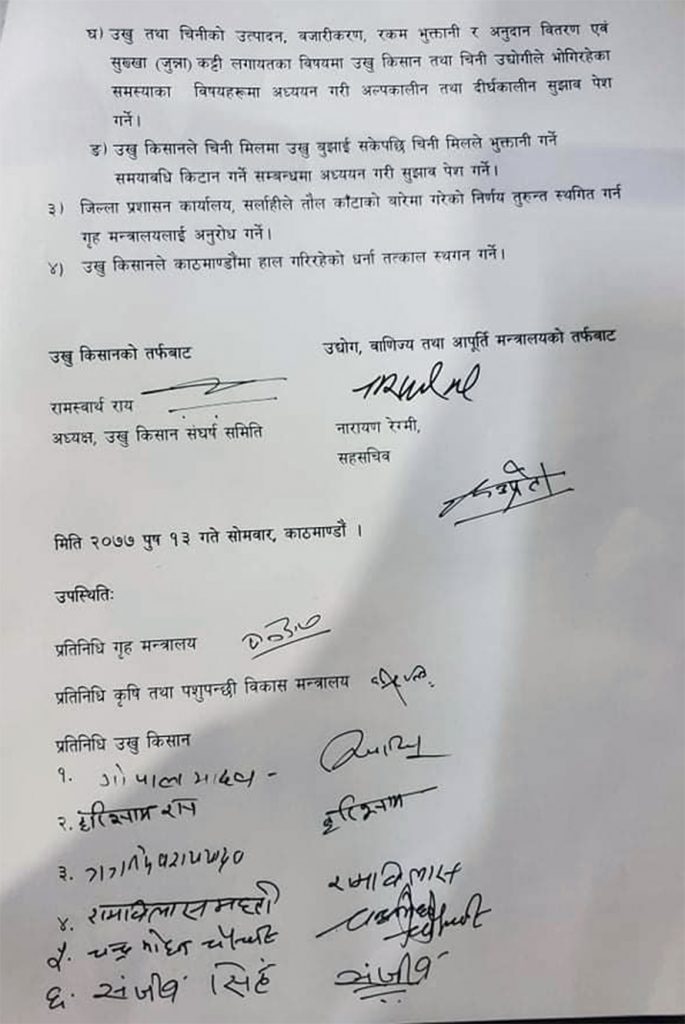 घ) उखु तथा चिनीको उत्पादन, बजारीकरण, रकम भुक्तानी र अनुदान वितरण एवं
सुख्खा (जुन्ना) कट्टी लगायतका विषयमा उखु किसान तथा चिनी उद्योगीले भोगिरहेका
समस्याका विषयहरूमा अध्ययन गरी अल्पकालीन तथा दीर्घकालीन सुझाव पेश
गर्ने।
ङ) उखु किसानले चिनी मिलमा उखु बुझाई सकेपछि चिनी मिलले भुक्तानी गर्ने
समयावधि किटान गर्ने सम्बन्धमा अध्ययन गरी सुझाव पेश गर्ने।
३) जिल्ला प्रशासन कार्यालय, सर्लाहीले तौल काँटाको बारेमा गरेको निर्णय तुरुन्त स्थगित गर्न
गृह मन्त्रालयलाई अनुरोध गर्ने।
४) उखु किसानले काठमाण्डौंमा हाल गरिरहेको धर्ना तत्काल स्थगन गर्ने।
उखु किसानको तर्फबाट
उद्योग, वाणिज्य तथा आपूर्ति मन्त्रालयको तर्फबाट
रामस्वार्थ राय
अध्यक्ष, उखु किसान संघर्ष समिति
नारायण रेग्मी,
सहसचिव
मिति २०७७ पुष १३ गते सोमवार, काठमाण्डौं ।
उपस्थितिः
प्रतिनिधि गृह मन्त्रालय
प्रतिनिधि कृषि तथा पशुपन्छी विकास मन्त्रालय
प्रतिनिधि उखु किसान
१. गोपाल यादव -
२. हरिश्याम राय हरिश्याम
३.
४. रामाविलास महतो रमाविलास
५. चन्द्र मोहन चौधरी
६. संजीव सिहं संजीव